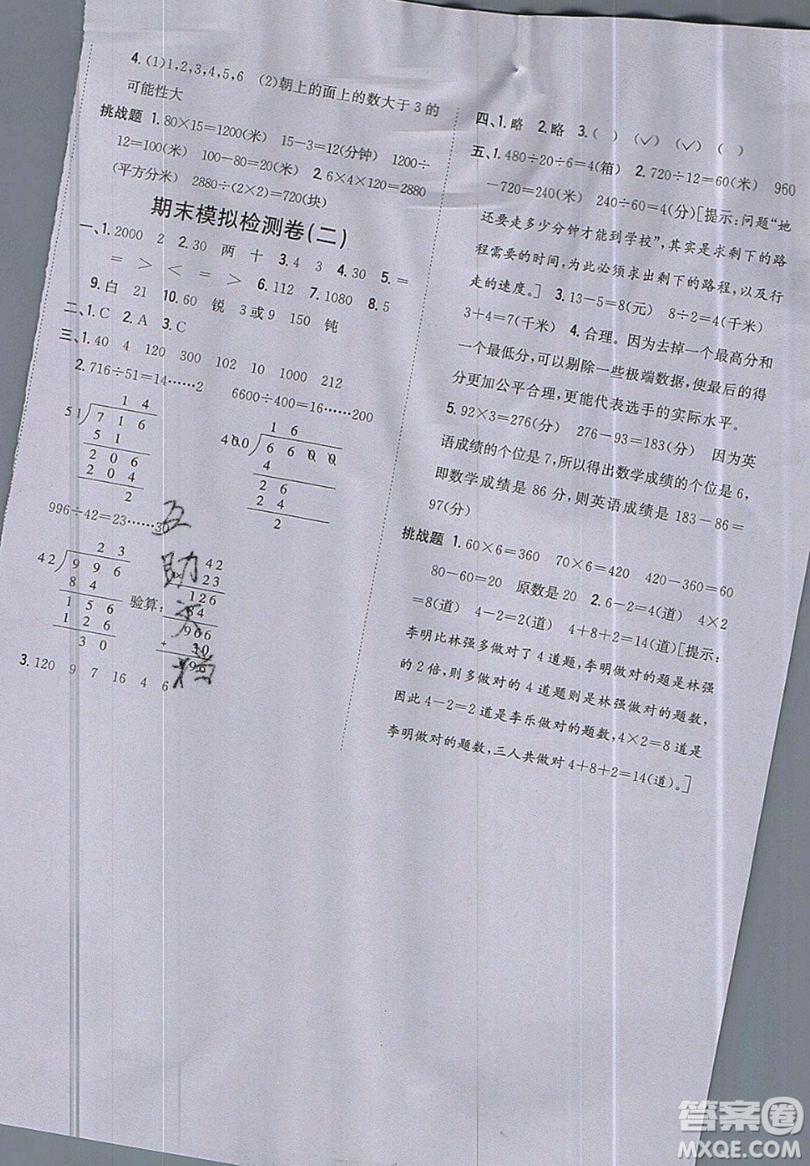 4.(1)1,2,3,4,5,6　(2)朝上的面上的数大于3的
可能性大
挑战题　1.80×15=1200(米)　15-3=12(分钟)　1200÷
12=100(米)　100-80=20(米)　2.6×4×120=2880
(平方分米)　2880÷(2×2)=720(块)
期末模拟检测卷(二)
一、1.2000　2　2.30　两　十　3.4　3　4.30　5.=
=　>　<　=　>　6.112　7.1080　8.5
9.白　21　10.60　锐　3或9　150　钝
二、1.C　2.A　3.C
三、1.40　4　120　300　102　10　1000　212
2.716÷51=14……2　6600÷400=16……200
1 4
51 7 1 6
5 1
2 0 6
2 0 4
2
1 6
400 6 6 0 0
4
2 6
2 4
2
996÷42=23……30
2 3
42 9 9 6
8 4
1 5 6
1 2 6
3 0
验算:
42
23
126
84
966
+ 30
996
3.120　9　7　16　4　6
互助文档
四、1.略　2.略　3.(　)　(√)　(√)　(　)
五、1.480÷20÷6=4(箱)　2.720÷12=60(米)　960
-720=240(米)　240÷60=4(分)[提示:问题“她
还要走多少分钟才能到学校”,其实是求剩下的路
程需要的时间,为此必须求出剩下的路程,以及行
走的速度。]　3.13-5=8(元)　8÷2=4(千米)
3+4=7(千米)　4.合理。因为去掉一个最高分和
一个最低分,可以剔除一些极端数据,使最后的得
分更加公平合理,更能代表选手的实际水平。
5.92×3=276(分)　276-93=183(分)　因为英
语成绩的个位是7,所以得出数学成绩的个位是6,
即数学成绩是86分,则英语成绩是183-86=
97(分)
挑战题　1.60×6=360　70×6=420　420-360=60
80-60=20　原数是20　2.6-2=4(道)　4×2
=8(道)　4-2=2(道)　4+8+2=14(道)[提示:
李明比林强多做对了4道题,李明做对的题数是林强
的2倍,则多做对的4道题则是林强做对的题数,
因此4-2=2道是李乐做对的题数,4×2=8道是
李明做对的题数,三人共做对4+8+2=14(道)。]
答案圈
MXQE.COM